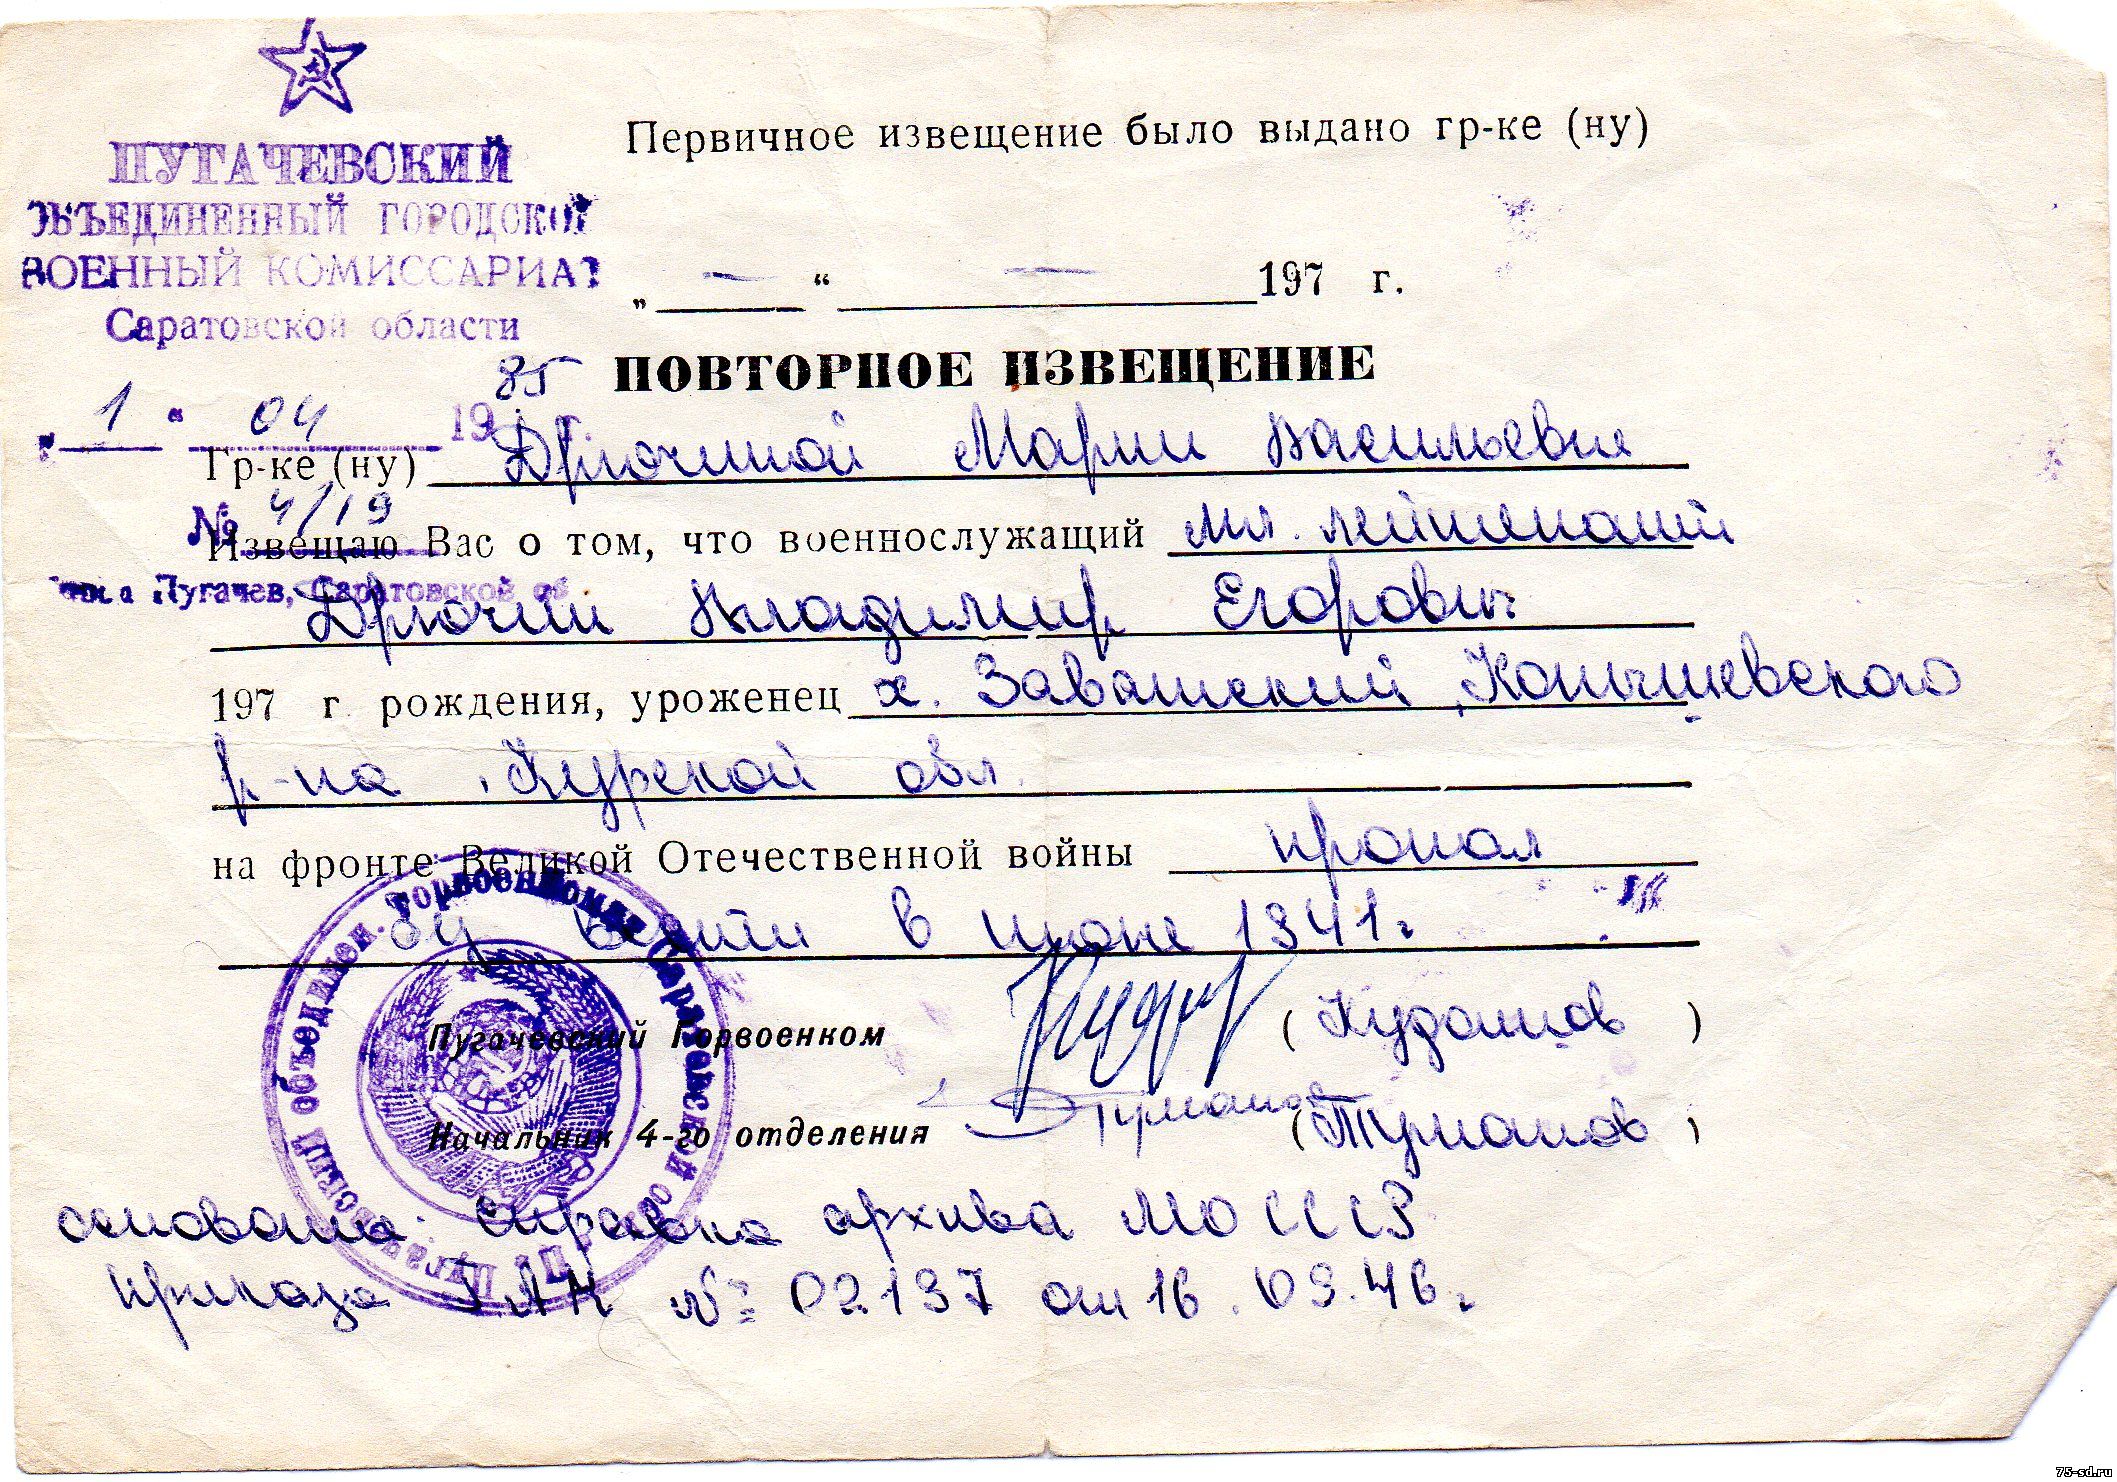 ПУГАЧЕВСКИЙ
ОБЪЕДИНЕННЫЙ ГОРОДСКОЙ
ВОЕННЫЙ КОМИССАРИАТ
Саратовской области
„ 1 “ 04 1985 г.
№ 4/19
Пугачев, Саратовской об
Первичное извещение было выдано гр-ке (ну)
„ — “ — 197 г.
ПОВТОРНОЕ ИЗВЕЩЕНИЕ
Гр-ке (ну) Дрючиной Марии Васильевне
Извещаю Вас о том, что военнослужащий мл. лейтенант
Дрючин Владимир Егорович
197 г. рождения, уроженец х. Конышевского
р-на, Курской обл.
на фронте Великой Отечественной войны пропал
без вести в 1941г.
Пугачевский Горвоенком (Кудашов)
Начальник 4-го отделения Туманов (Туманов)
основание: справка архива МО СССР
приказа № 02137 от 16.09.46г.
Пугачевский объединен. горвоенкомат Саратовской обл
75-sd.ru